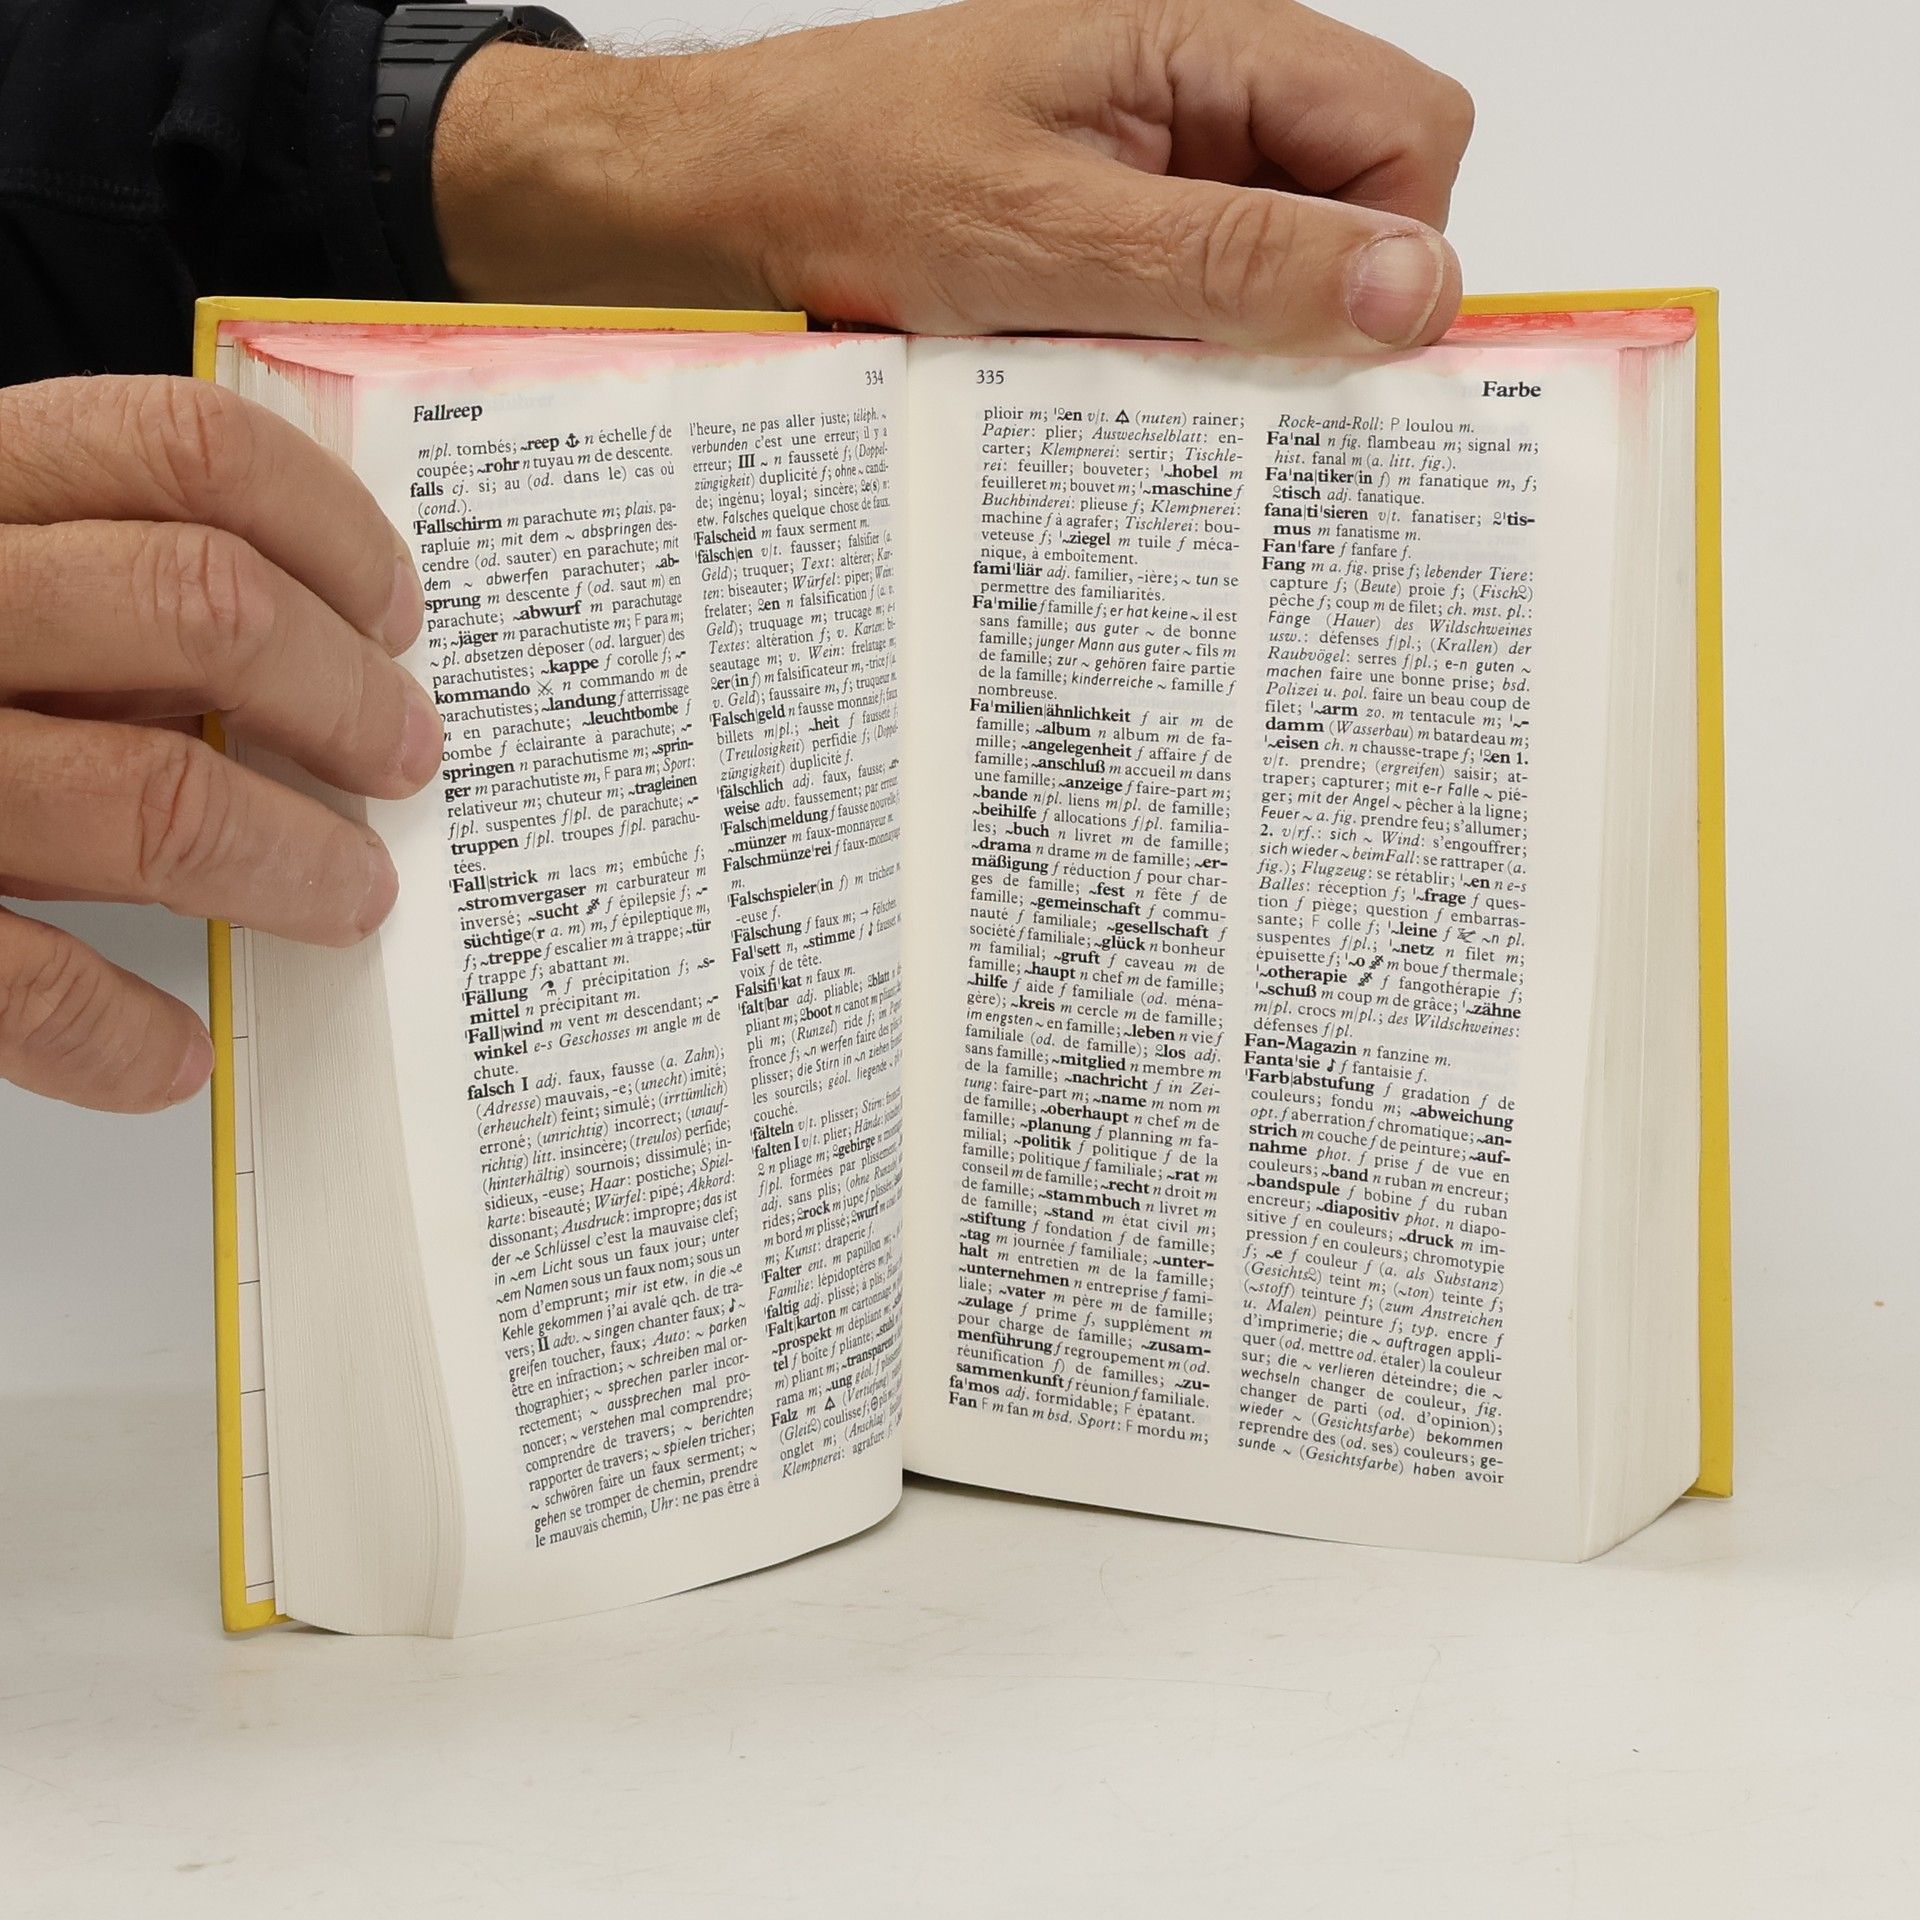 Fallreep
334
m/pl. tombés; ~reep ⚓ n échelle f de
coupée; ~rohr n tuyau m de descente.
falls cj. si; au (od. dans le) cas où
(cond.).
'Fallschirm m parachute m; plais. pa-
rapluie m; mit dem ~ abspringen des-
cendre (od. sauter) en parachute; mit
dem ~ abwerfen parachuter; ~ab-
sprung m descente f (od. saut m) en
parachute; ~abwurf m parachutage
m; ~jäger m parachutiste m; F para m;
~ pl. absetzen déposer (od. larguer) des
parachutistes; ~kappe f corolle f; ~-
kommando ⚔ n commando m de
parachutistes; ~landung f atterrissage
m en parachute; ~leuchtbombe f
bombe f éclairante à parachute; ~-
springen n parachutisme m; ~sprin-
ger m parachutiste m, F para m; Sport:
relativeur m; chuteur m; ~tragleinen
f/pl. suspentes f/pl. de parachute; ~-
truppen f/pl. troupes f/pl. parachu-
tées.
'Fall|strick m lacs m; embûche f;
~stromvergaser m carburateur m
inversé; ~sucht f épilepsie f; ~-
süchtige(r a. m) m, f épileptique m,
f; ~treppe f escalier m à trappe; ~tür
f trappe f; abattant m.
'Fällung f précipitation f; ~s-
mittel n précipitant m.
'Fall|wind m vent m descendant; ~-
winkel e-s Geschosses m angle m de
chute.
falsch I adj. faux, fausse (a. Zahn);
(Adresse) mauvais, -e; (unecht) imité;
(erheuchelt) feint; simulé; (irrtümlich)
erroné; (unrichtig) incorrect; (unauf-
richtig) litt. insincère; (treulos) perfide;
(hinterhältig) sournois; dissimulé; in-
sidieux, -euse; Haar: postiche; Spiel-
karte: biseauté; Würfel: pipé; Akkord:
dissonant; Ausdruck: impropre; das ist
der ~e Schlüssel c'est la mauvaise clef;
in ~em Licht sous un faux jour; unter
~em Namen sous un faux nom; sous un
nom d'emprunt; mir ist etw. in die ~e
Kehle gekommen j'ai avalé qch. de tra-
vers; II adv. ~ singen chanter faux; ♪ ~
greifen toucher, faux; Auto: ~ parken
être en infraction; ~ schreiben mal or-
thographier; ~ sprechen parler incor-
rectement; ~ aussprechen mal pro-
noncer; ~ verstehen mal comprendre;
comprendre de travers; ~ berichten
rapporter de travers; ~ spielen tricher;
~ schwören faire un faux serment; ~
gehen se tromper de chemin, prendre
le mauvais chemin, Uhr: ne pas être à
l'heure, ne pas aller juste; téléph. ~
verbunden c'est une erreur; il y a
erreur; III ~ n fausseté f; (Doppel-
züngigkeit) duplicité f; ohne ~ candi-
de; ingénu; loyal; sincère; ⚲e(s) n:
etw. Falsches quelque chose de faux.
'Falscheid m faux serment m.
'fälsch|en v/t. fausser; falsifier (a.
Geld); truquer; Text: altérer; Kar-
ten: biseauter; Würfel: piper; Wein:
frelater; ⚲en n falsification f (a. v.
Geld); truquage m; trucage m; e-s
Textes: altération f; v. Karten: bi-
seautage m; v. Wein: frelatage m;
⚲er(in f) m falsificateur m, -trice f (a.
v. Geld); faussaire m, f; truqueur m.
'Falsch|geld n fausse monnaie f; faux
billets m/pl.; ~heit f fausseté f;
(Treulosigkeit) perfidie f; (Doppel-
züngigkeit) duplicité f.
'fälschlich adj. faux, fausse;
weise adv. faussement; par erreur.
'Falsch|meldung f fausse nouvelle f;
~münzer m faux-monnayeur m.
Falschmünze'rei f faux-monnayage
m.
'Falschspieler(in f) m tricheur m,
-euse f.
'Fälschung f faux m; → Fälschen.
Fal'sett n, ~stimme f ♪ fausset m,
voix f de tête.
Falsifi'kat n faux m.
'falt|bar adj. pliable; ⚲blatt n dé-
pliant m; ⚲boot n canot m pliant;
pli m; (Runzel) ride f; im Papier:
fronce f; ~n werfen faire des plis;
plisser; die Stirn in ~n ziehen froncer
les sourcils; géol. liegende ~ pli m
couché.
'fälteln v/t. plisser; Stirn:
'falten I v/t. plier; Hände:
⚲ n pliage m; ⚲gebirge n
f/pl. formées par plissement
adj. sans plis; (ohne Runzeln)
rides; ⚲rock m jupe f plissée;
m bord m plissé; ⚲wurf m
m; Kunst: draperie f.
'Falter ent. m papillon m;
Familie: lépidoptères m/pl.
'faltig adj. plissé; à plis;
'Falt|karton m cartonnage m
~prospekt m dépliant m;
tel f boîte f pliante;
m) pliant m; ~transparent
rama m; ~ung géol. f plissement
Falz m (Vertiefung)
(Gleit⚲) coulisse f;
onglet m; (Anschlag)
Klempnerei: agrafure f;
335
Farbe
plioir m; '⚲en v/t. (nuten) rainer;
Papier: plier; Auswechselblatt: en-
carter; Klempnerei: sertir; Tischle-
rei: feuiller; bouveter; '~hobel m
feuilleret m; bouvet m; '~maschine f
Buchbinderei: plieuse f; Klempnerei:
machine f à agrafer; Tischlerei: bou-
veteuse f; '~ziegel m tuile f méca-
nique, à emboîtement.
fami'liär adj. familier, -ière; ~ tun se
permettre des familiarités.
Fa'milie f famille f; er hat keine ~ il est
sans famille; aus guter ~ de bonne
famille; junger Mann aus guter ~ fils m
de famille; zur ~ gehören faire partie
de la famille; kinderreiche ~ famille f
nombreuse.
Fa'milien|ähnlichkeit f air m de
famille; ~album n album m de fa-
mille; ~angelegenheit f affaire f de
famille; ~anschluß m accueil m dans
une famille; ~anzeige f faire-part m;
~bande n/pl. liens m/pl. de famille;
~beihilfe f allocations f/pl. familia-
les; ~buch n livret m de famille;
~drama n drame m de famille; ~er-
mäßigung f réduction f pour char-
ges de famille; ~fest n fête f de
famille; ~gemeinschaft f commu-
nauté f familiale; ~gesellschaft f
société f familiale; ~glück n bonheur
m familial; ~gruft f caveau m de
famille; ~haupt n chef m de famille;
~hilfe f aide f familiale (od. ména-
gère); ~kreis m cercle m de famille;
im engsten ~ en famille; ~leben n vie f
familiale (od. de famille); ⚲los adj.
sans famille; ~mitglied n membre m
de la famille; ~nachricht f in Zei-
tung: faire-part m; ~name m nom m
de famille; ~oberhaupt n chef m de
famille; ~planung f planning m fa-
milial; ~politik f politique f de la
famille; politique f familiale; ~rat m
conseil m de famille; ~recht n droit m
de famille; ~stammbuch n livret m
de famille; ~stand m état civil m;
~stiftung f fondation f de famille;
~tag m journée f familiale; ~unter-
halt m entretien m de la famille;
~unternehmen n entreprise f fami-
liale; ~vater m père m de famille;
~zulage f prime f, supplément m
pour charge de famille; ~zusam-
menführung f regroupement m (od.
réunification f) de familles; ~zu-
sammenkunft f réunion f familiale.
fa'mos adj. formidable; F épatant.
Fan F m fan m bsd. Sport: F mordu m;
Rock-and-Roll: P loulou m.
Fa'nal n fig. flambeau m; signal m;
hist. fanal m (a. litt. fig.).
Fa'na|tiker(in f) m fanatique m, f;
⚲tisch adj. fanatique.
fana|ti'sieren v/t. fanatiser; ⚲'tis-
mus m fanatisme m.
Fan'fare f fanfare f.
Fang m a. fig. prise f; lebender Tiere:
capture f; (Beute) proie f; (Fisch⚲)
pêche f; coup m de filet; ch. mst. pl.:
Fänge (Hauer) des Wildschweines
usw.: défenses f/pl.; (Krallen) der
Raubvögel: serres f/pl.; e-n guten ~
machen faire une bonne prise; bsd.
Polizei u. pol. faire un beau coup de
filet; '~arm zo. m tentacule m; '~-
damm (Wasserbau) m batardeau m;
'~eisen ch. n chausse-trape f; '⚲en 1.
v/t. prendre; (ergreifen) saisir; at-
traper; capturer; mit e-r Falle ~ pié-
ger; mit der Angel ~ pêcher à la ligne;
Feuer ~ a. fig. prendre feu; s'allumer;
2. v/rf.: sich ~ Wind: s'engouffrer;
sich wieder ~ beim Fall: se rattraper (a.
fig.); Flugzeug: se rétablir; '~en n e-s
Balles: réception f; '~frage f ques-
tion f piège; question f embarras-
sante; F colle f; '~leine f ~n pl.
suspentes f/pl.; '~netz n filet m;
épuisette f; '~o m boue f thermale;
'~otherapie f fangothérapie f;
'~schuß m coup m de grâce; '~zähne
m/pl. crocs m/pl.; des Wildschweines:
défenses f/pl.
Fan-Magazin n fanzine m.
Fanta'sie ♪ f fantaisie f.
'Farb|abstufung f gradation f de
couleurs; fondu m; ~abweichung
opt. f aberration f chromatique; ~an-
strich m couche f de peinture; ~auf-
nahme phot. f prise f de vue en
couleurs; ~band n ruban m encreur;
~bandspule f bobine f du ruban
encreur; ~diapositiv phot. n diapo-
sitive f en couleurs; ~druck m im-
pression f en couleurs; chromotypie
f; ~e f couleur f (a. als Substanz)
(Gesichts⚲) teint m; (~ton) teinte f;
(~stoff) teinture f; (zum Anstreichen
u. Malen) peinture f; typ. encre f
d'imprimerie; die ~ auftragen appli-
quer (od. mettre od. étaler) la couleur
sur; die ~ verlieren déteindre; die ~
wechseln changer de couleur, fig.
changer de parti (od. d'opinion);
wieder ~ (Gesichtsfarbe) bekommen
reprendre des (od. ses) couleurs; ge-
sunde ~ (Gesichtsfarbe) haben avoir